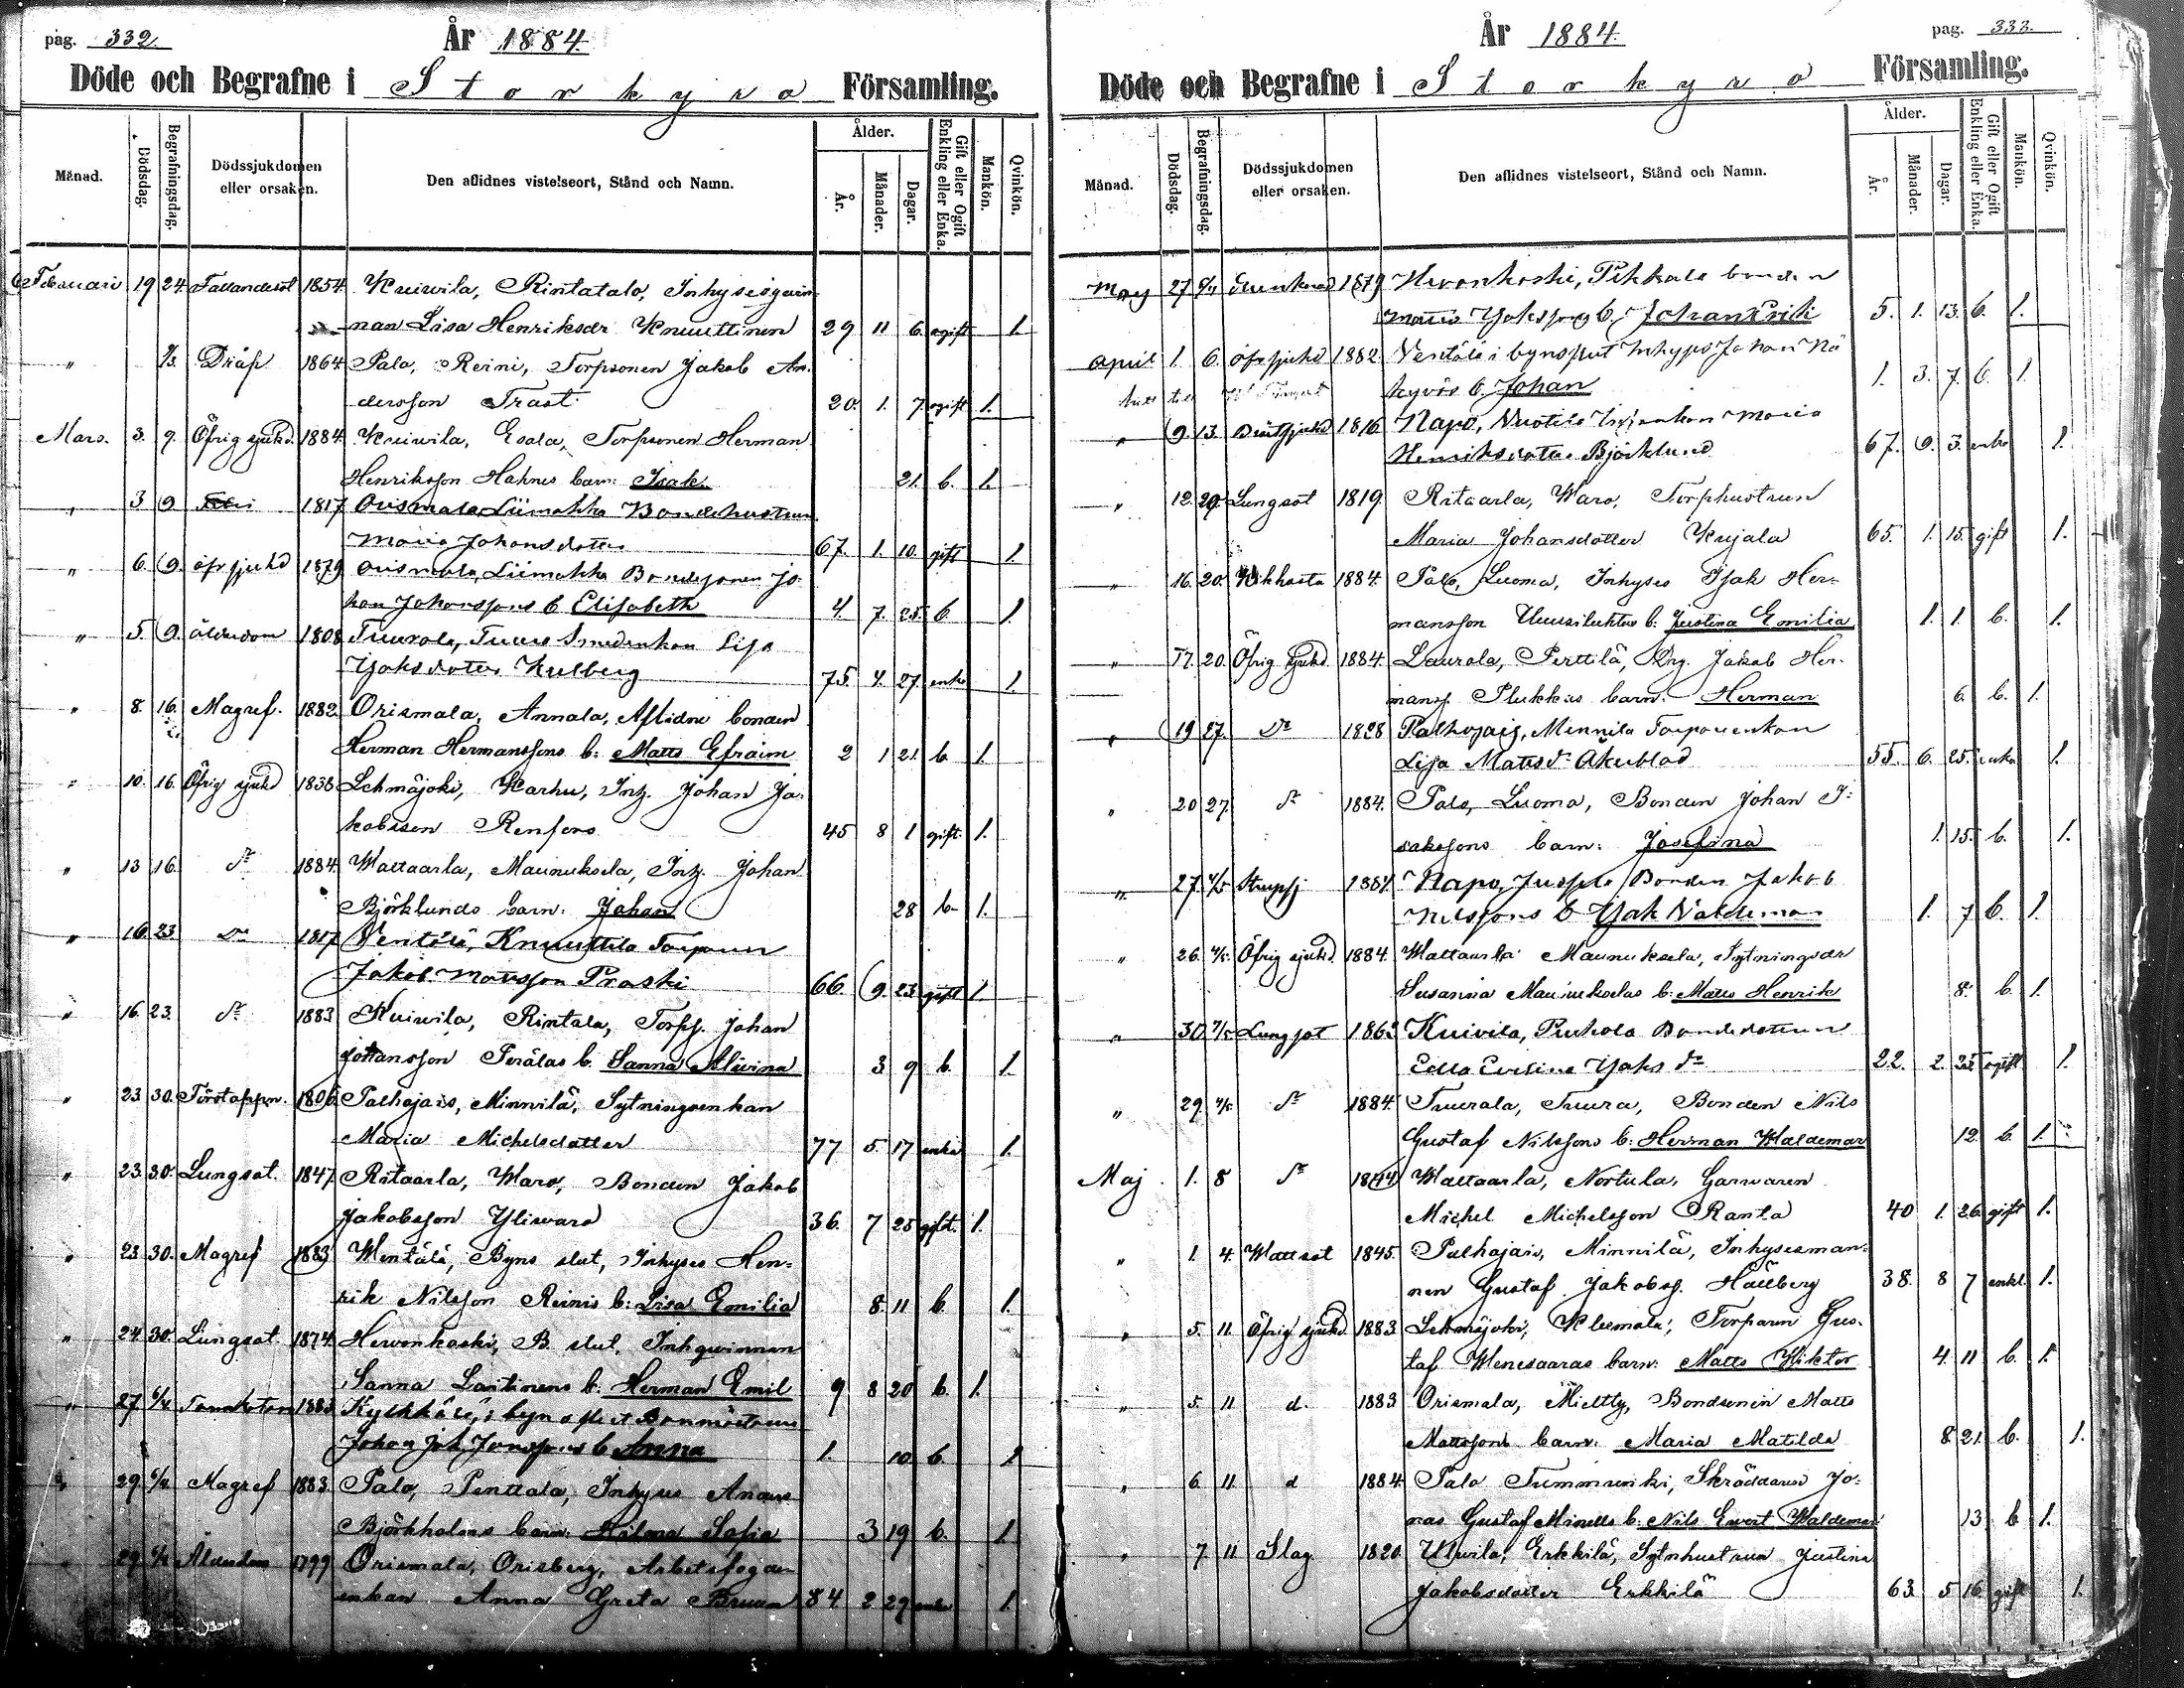 pag. 332.
År 1884.
Döde och Begrafne i Storkyro Församling.
Månad.
Dödsdag.
Begrafningsdag.
Dödssjukdomen eller orsaken.
Den aflidnes vistelseort, Stånd och Namn.
Ålder.
År.
Månader.
Dagar.
Gift eller Ogift Enkling eller Enka.
Mankön.
Qvinkön.
Februari 19 24 Fallandesot 1854 Kuiwila, Rintatalo, Inhysesqvin-
nan Lisa Henriksdr Knuuttinen 29 11 6 ogift 1.
" 2/3 Dråp 1864 Palo, Reini, Torpsonen Jakob An-
dersson Trast 20. 1. 7. ogift 1.
Mars. 3. 9. Öfrig sjukd. 1884 Kuiwila, Esala, Torpsonen Herman
Henriksson Hahnes barn: Isak 21. b. 1.
" 3 9 1817 Orismala Liimakka Bondehustrun
Maria Johansdotter 67. 1. 10. gift 1.
" 6. 9. öfr sjukd 1879 Orismala Liimakka Bondesonen Jo-
han Johanssons b Elisabeth 4 7. 25. b. 1
" 5. 9. ålderdom 1808 Tuurala, Tuura Smedenkan Lisa
Isaksdotter Kulberg 75. 4. 27. enka 1.
" 8. 16. Magref. 1882 Orismala, Annala, Aflidne bonden
Herman Hermanssons b: Matts Efraim 2 1 21. b 1.
" 10. 16. Öfrig sjukd 1838 Lehmäjoki, Karhu, Inh. Johan Ja-
kobsson Renfors 45 8 1 gift. 1.
" 13 16. dº 1884. Wallaarla, Maunuksela, Inh. Johan
Björklunds barn: Johan 28 b 1.
" 16. 23 dº 1817 Ventälä, Knuuttila Torparen
Jakob Mattsson Praski 66 9. 23. gift 1.
" 16. 23. dº 1883 Kuiwila, Rintala, Torps. Johan
Johansson Perälas b. Sanna Alwina 3 9 b. 1.
" 23 30. Förstoppn. 1806 Palhojais, Minnilä, Sytningsenkan
Maria Michelsdotter 77 5. 17 enka 1.
" 23. 30. Lungsot. 1847 Ritaarla, Waro, Bonden Jakob
Jakobsson Yliwaro 36. 7 25 gift. 1.
" 23. 30. Magref 1883 Wentälä, Byns slut, Inhyses Hen-
rik Nilsson Reinis b: Lisa Emilia 8. 11 b. 1.
" 24. 30. Lungsot 1874. Herwonkoski, B. slut, Inhqwinnan
Sanna Lantinens b: Herman Emil 9 8 20 b. 1.
" 27 6/4 1883 Kylkkälä, byns slut
Johan b Anna 1. 10. b. 1
" 29. 6/4 Magref 1883. Palo, Penttala, Inhyses Anders
Björkholms barn: Hilma Sofia 3 19 b. 1.
29. 6/4 Ålderdom 1799 Orismala, Orisberg, Arbetsfogde-
enkan Anna Greta Bruun 84 2 29 enka 1.
pag. 333.
År 1884.
Döde och Begrafne i Storkyro Församling.
Månad.
Dödsdag.
Begrafningsdag.
Dödssjukdomen eller orsaken.
Den aflidnes vistelseort, Stånd och Namn.
Ålder.
År.
Månader.
Dagar.
Gift eller Ogift Enkling eller Enka.
Mankön.
Qvinkön.
27 1879 Hervonkoski, Pikkala bonden
Matts Isakssons b. Johan Erik 5. 1. 13. b. 1.
April 1 6. öfr sjukd 1882. Ventälä i bynsslut Inhyses Johan
b. Johan 1. 3. 7. b. 1.
" 9. 13. Bröstsjukd 1816 Napo, Vuotila Maria
Henriksdotter Björklund 67. 9. 3. enka 1.
" 12. 20. Lungsot 1819. Ritaarla, Waro, Torphustrun
Maria Johansdotter Kujala 65. 1. 15. gift 1.
" 16. 20. Kikhosta 1884. Palo, Luoma, Inhyses Isak Her-
mansson Uusiluhtas b: Justina Emilia 1. 1. b. 1.
" 17. 20. Öfrig sjukd 1884. Laurola, Perttilä, Drg. Jakob Her-
mans. Plukkas barn: Herman 6. b. 1.
" 19 27. Dº 1828 Palhojais, Minnila Torparenkan
Lisa Mattsdº Åkerblad 55. 6. 25. enka 1.
" 20 27. dº 1884. Palo, Luoma, Bonden Johan I-
saksons barn: Josefina 1. 15. b. 1.
" 27. 4/5 Strupsj 1884. Napo, Jussila Bonden Jakob
Nilssons b Isak Valdemar 1. 7 b. 1.
" 26. 4/5. Öfrig sjukd. 1884. Wallaarla Maunuksela, Sytningsdr
Susanna Maunukselas b: Matts Henrik 8. b. 1.
" 30. Lungsot 1862 Kuivila, Purkola Bondedottren
Edla Evelina Isaks dº 22. 2. 25 ogift 1.
" 29. 4/5. dº 1884. Tuurala, Tuura, Bonden Nils
Gustaf Nilssons b: Herman Waldemar 12. b. 1.
Maj. 1. 8 dº 1844 Wallaarla, Nortula, Garwaren
Michel Michelsson Ranta 40 1. 26. gift 1.
" 1. 4. Wattsot 1845. Palhojais, Minnilä, Inhysesman-
nen Gustaf Jakobss. Hällberg 38. 8 7 enkl. 1.
" 5. 11. Öfrig sjukd. 1883 Lehmäjoki, Kleemola, Torparen Gus-
taf Wenesaaras barn: Matts Wiktor 4. 11 b. 1.
" 5. 11 d. 1883 Orismala, Mielty, Bondsonen Matts
Mattsons barn: Maria Matilda 8 21. b. 1.
" 6. 11. d 1884. Palo Tummunki, Skräddaren Jo-
nas Gustaf Minells b: Nils Ewert Waldemar 13 b 1.
" 7. 11 Slag. 1820. Ulvila, Erkkilä, Sytnhustrun Justina
Jakobsdotter Erkkilä 63. 5 16 gift 1.